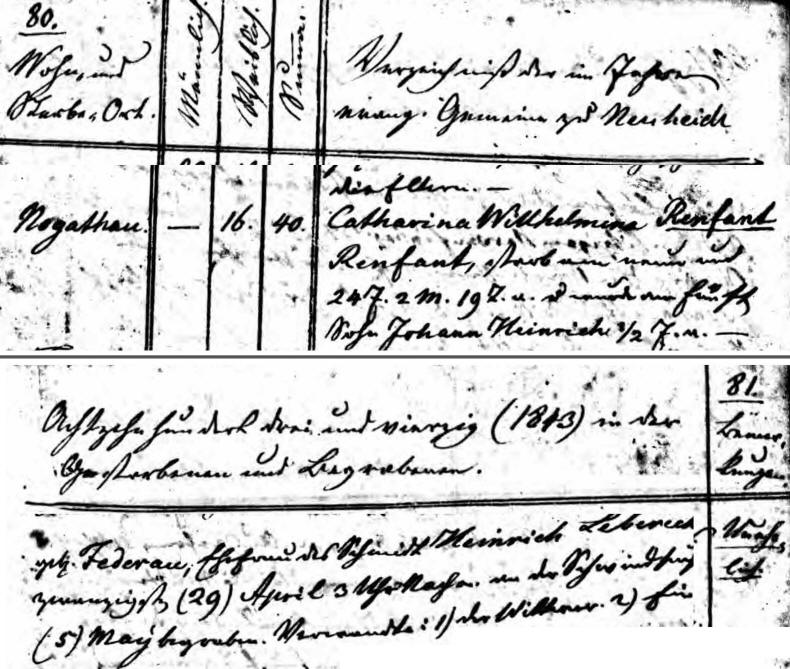 80.
Wohn- und
Sterbe-Ort.
Männlich
Weiblich.
Summa.
Verzeichniß der im Jahre
evang. Gemeine zu Neuheide
die Eltern. —
Nogathau. — 16. 40. Catharina Willhelmina Renfant
Renfant, starb am neun und
24 J. 2 M. 19 T. a. u. wurde am fünft
Sohn Johann Heinrich 1/2 J. a. —
81.
Achtzehnhundert drei und vierzig (1843) in der
Gestorbenen und Begrabenen.
Bemer-
kungen
geb. Federau, Ehefrau des Schmidt Heinrich Leberecht
zwanzigst (29) April 3 Uhr Nachm. an der Schwindsucht
(5) May begraben. Verwandte: 1) der Wittwer. 2) Ein